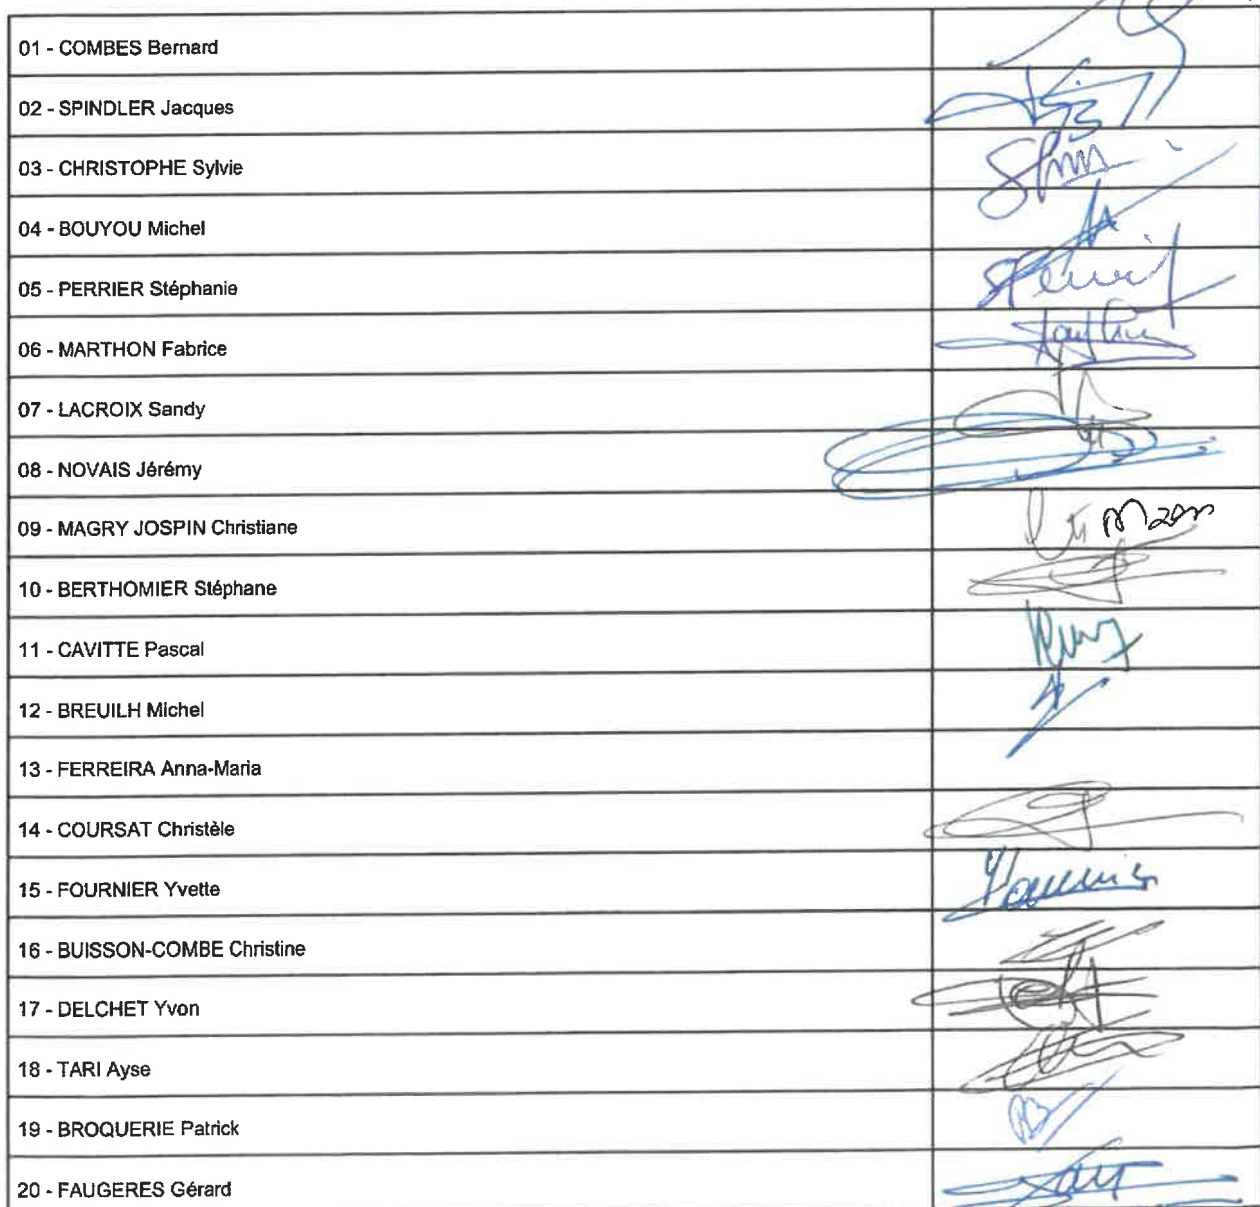 01 - COMBES Bernard
02 - SPINDLER Jacques
03 - CHRISTOPHE Sylvie
04 - BOUYOU Michel
05 - PERRIER Stéphanie
06 - MARTHON Fabrice
07 - LACROIX Sandy
08 - NOVAIS Jérémy
09 - MAGRY JOSPIN Christiane
10 - BERTHOMIER Stéphane
11 - CAVITTE Pascal
12 - BREUILH Michel
13 - FERREIRA Anna-Maria
14 - COURSAT Christèle
15 - FOURNIER Yvette
16 - BUISSON-COMBE Christine
17 - DELCHET Yvon
18 - TARI Ayse
19 - BROQUERIE Patrick
20 - FAUGERES Gérard